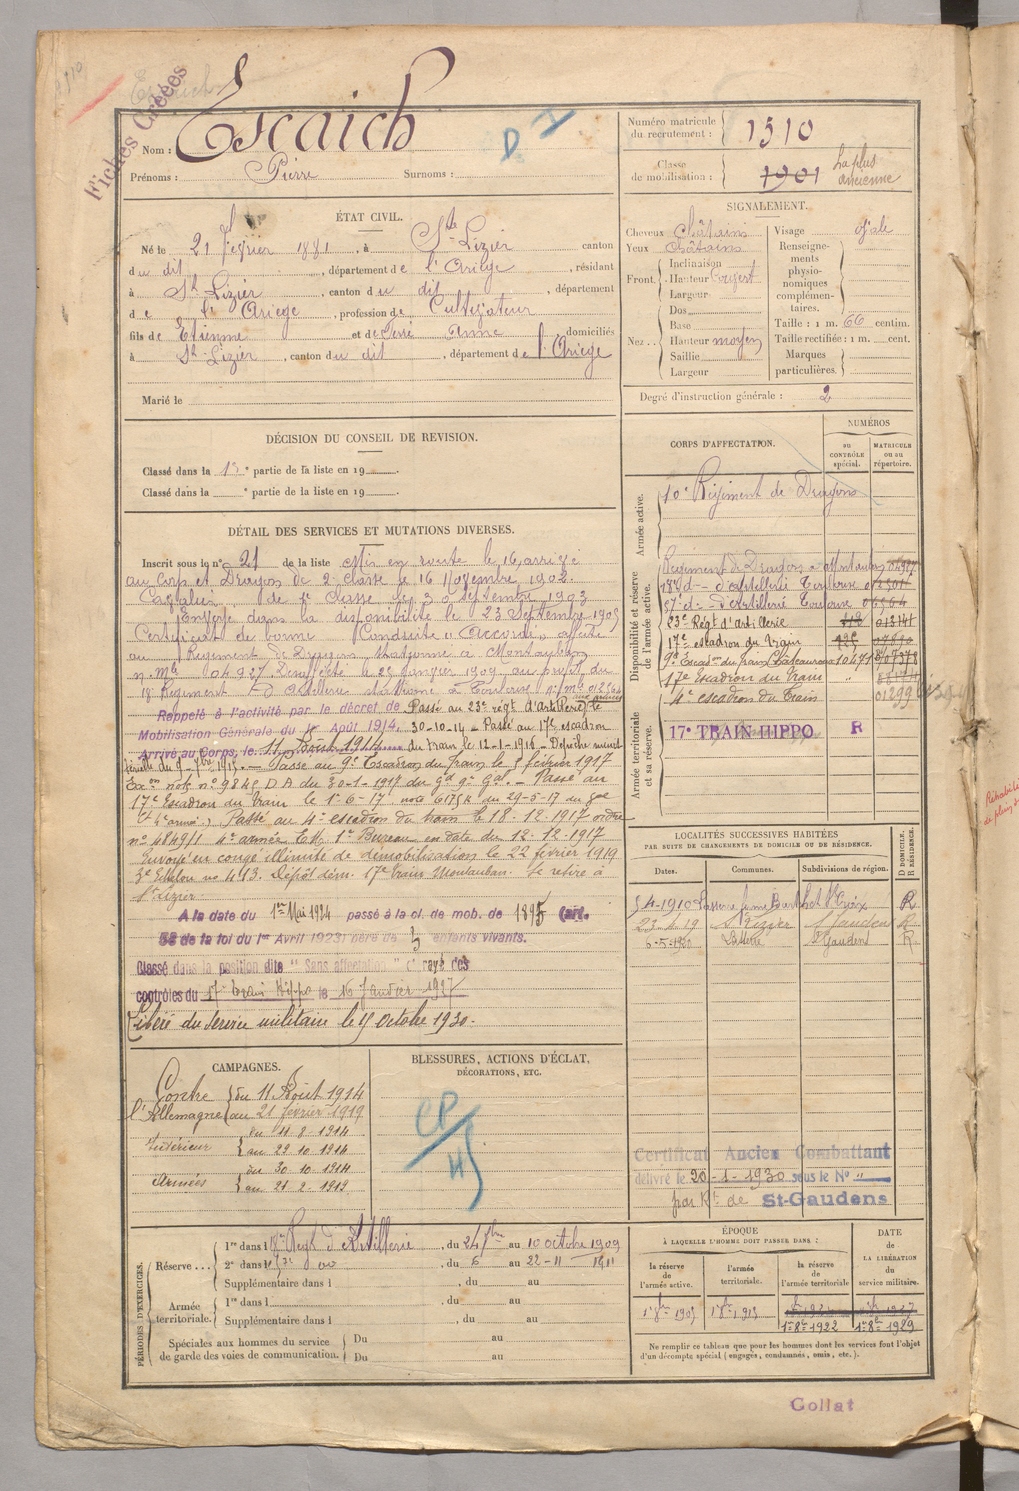 Fiches Créées
Nom : Escaich
Prénoms : Pierre Surnoms :
Numéro matricule du recrutement : 1510
Classe de mobilisation : 1901 La plus ancienne
ÉTAT CIVIL.
Né le 21 février 1881, à St Lizier canton
du dit, département de l'Ariège, résidant
à St Lizier, canton du dit, département
de l'Ariège, profession de Cultivateur
fils de Etienne et de Anne, domiciliés
à St Lizier, canton du dit, département de l'Ariège
Marié le
SIGNALEMENT.
Cheveux châtains
Yeux châtains
Front. Inclinaison
Hauteur
Largeur
Nez. Dos
Base
Hauteur moyen
Saillie
Largeur
Visage ovale
Renseignements physionomiques complémentaires.
Taille : 1 m. 66 centim.
Taille rectifiée : 1 m. cent.
Marques particulières.
Degré d'instruction générale : 2
DÉCISION DU CONSEIL DE REVISION.
Classé dans la 1re partie de la liste en 19
Classé dans la partie de la liste en 19
DÉTAIL DES SERVICES ET MUTATIONS DIVERSES.
Inscrit sous le n° 21 de la liste Mis en route le 16, arrivé
au Corps et Dragon de 2e Classe le 16 Novembre 1902.
Cavalier de 1e Classe le 30 septembre 1903
Envoyé dans la disponibilité le 23 Septembre 1905
Certificat de bonne Conduite "Accordé" affecté
au Régiment de Dragons stationné à Montauban
n° Mle 04927 Désaffecté le 25 Janvier 1909 au profit du
18e Régiment d'Artillerie stationné à Toulouse n° mle 012564
Rappelé à l'activité par le décret de
Mobilisation Générale du 1er Août 1914.
Arrivé au Corps le 11 Août 1914
Passé au 23e régt d'Artillerie le
30-10-14 - Passé au 17e escadron
du train le 12-1-1916 - Dépêche minist
Passé au 9e Escadron du Train le 5 février 1917
note n° 9845 D A du 30-1-1917 du gd qr gal. - Passé au
17e Escadron du Train le 1-6-17 note 6175 K du 29-5-17 du
Passé au 4e escadron du train le 18-12-1917 ordre
n° 4849/1 4e armée E.M. 1er Bureau en date du 12-12-1917
Envoyé en congé illimité de démobilisation le 22 février 1919
3e Echelon no 413. Dépôt dém. 17e train Montauban. Se retire à
St Lizier
A la date du 1er Mai 1924 passé à la cl. de mob. de 1895 (art.
58 de la loi du 1er Avril 1923) père de 3 enfants vivants.
Classé dans la position dite "Sans affectation" et rayé des
contrôles du 17e train Hippo le 16 Janvier 1927
Libéré du service militaire le 15 octobre 1930.
CORPS D'AFFECTATION.
NUMÉROS
AU CONTRÔLE spécial.
MATRICULE ou au répertoire.
Armée active.
10e Régiment de Dragons
Disponibilité et réserve de l'armée active.
Régiment de Dragons à Montauban 04927
18e d- d'artillerie Toulouse
57e d- d'Artillerie Toulouse
23e Régt d'artillerie 013141
17e escadron du Train
9e Escad. du train Châteauroux 10491
17e Escadron du Train
4e escadron du Train
Armée territoriale et sa réserve.
17e TRAIN HIPPO R
LOCALITÉS SUCCESSIVES HABITÉES
PAR SUITE DE CHANGEMENTS DE DOMICILE OU DE RÉSIDENCE.
Dates. Communes. Subdivisions de région. D DOMICILE. R RÉSIDENCE.
R.
23-4-19 St Lizier St Gaudens R.
St Gaudens R.
CAMPAGNES.
Contre l'Allemagne du 11 Août 1914
au 21 février 1919
Intérieur du 11 8 1914
au 29 10 1914
Armées du 30 10 1914
au 21 2 1919
BLESSURES, ACTIONS D'ÉCLAT, DÉCORATIONS, ETC.
Certificat Ancien Combattant
délivré le 20-1-1930 sous le N° "
par Rt de St-Gaudens
PÉRIODES D'EXERCICES.
Réserve... 1re dans l 18me Régt d'Artillerie, du 24 7bre au 10 octobre 1909
2e dans le, du 6 au 22-11 1911
Supplémentaire dans l, du au
Armée territoriale. 1re dans l, du au
Supplémentaire dans l, du au
Spéciales aux hommes du service de garde des voies de communication. Du au
Du au
ÉPOQUE
À LAQUELLE L'HOMME DOIT PASSER DANS :
la réserve de l'armée active.
l'armée territoriale.
la réserve de l'armée territoriale
DATE DE LA LIBÉRATION du service militaire.
1-8-1922
Ne remplir ce tableau que pour les hommes dont les services font l'objet
d'un décompte spécial (engagés, condamnés, omis, etc.).
Collat